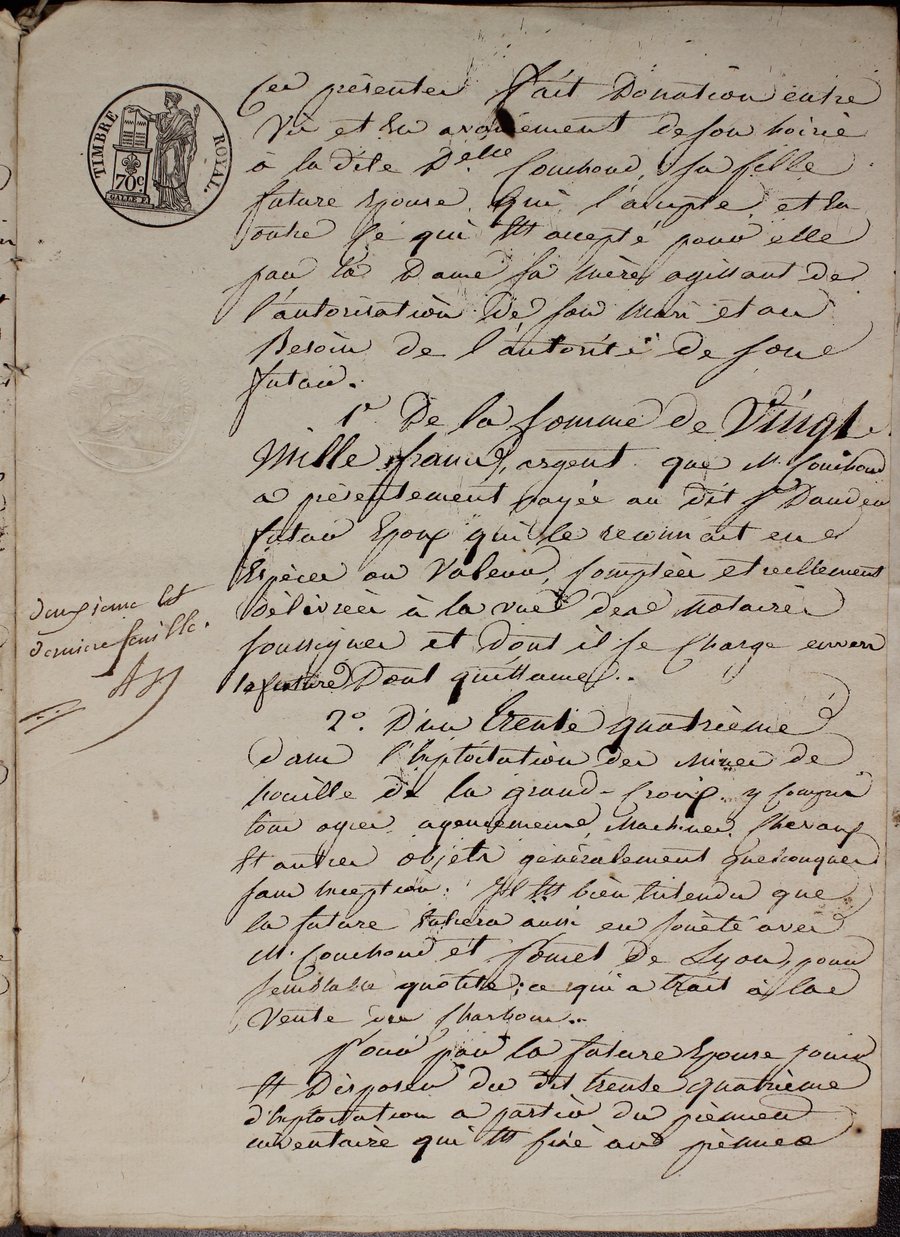 TIMBRE ROYAL.
70c
Ces présentes fait Donation entre
Vif et En avancement de son hoirie
à la dite Delle Couchoud, sa fille
future Epouse, Qui l'accepte, et En
outre Ce qui Est accepté pour elle
par la Dame Sa Mère agissant de
l'autorisation de son Mari et au
Besoin de l'autorité de son
futur.
1º De la Somme de Vingt
Mille francs, argent que Mr Couchoud
a présentement payée au dit Sr
futur Epoux qui le reconnait en
Espèces au Valeur, Comptées et réellement
Délivrées à la vue des Notaires
soussignés et Dont il se Charge envers
la future Dont quittance.
2º. D'un trente quatrième
dans l'Exploitation des Mines de
houille de la grand-Croix, y compris
tous agrès, agencements, Machines, Chevaux
Et autres objets généralement quelconques
sans Exception. Il Est bien Entendu que
la future Entrera aussi en société avec
Mr Couchoud et de Lyon, pour
semblable quotité; ce qui a trait à la
Vente des Charbons.
Pour par la future Epouse jouir
Et Disposer du dit trente quatrième
d'Exploitation a partir du premier
inventaire qui Est fixé au premier
deuxieme et
derniere feuille.